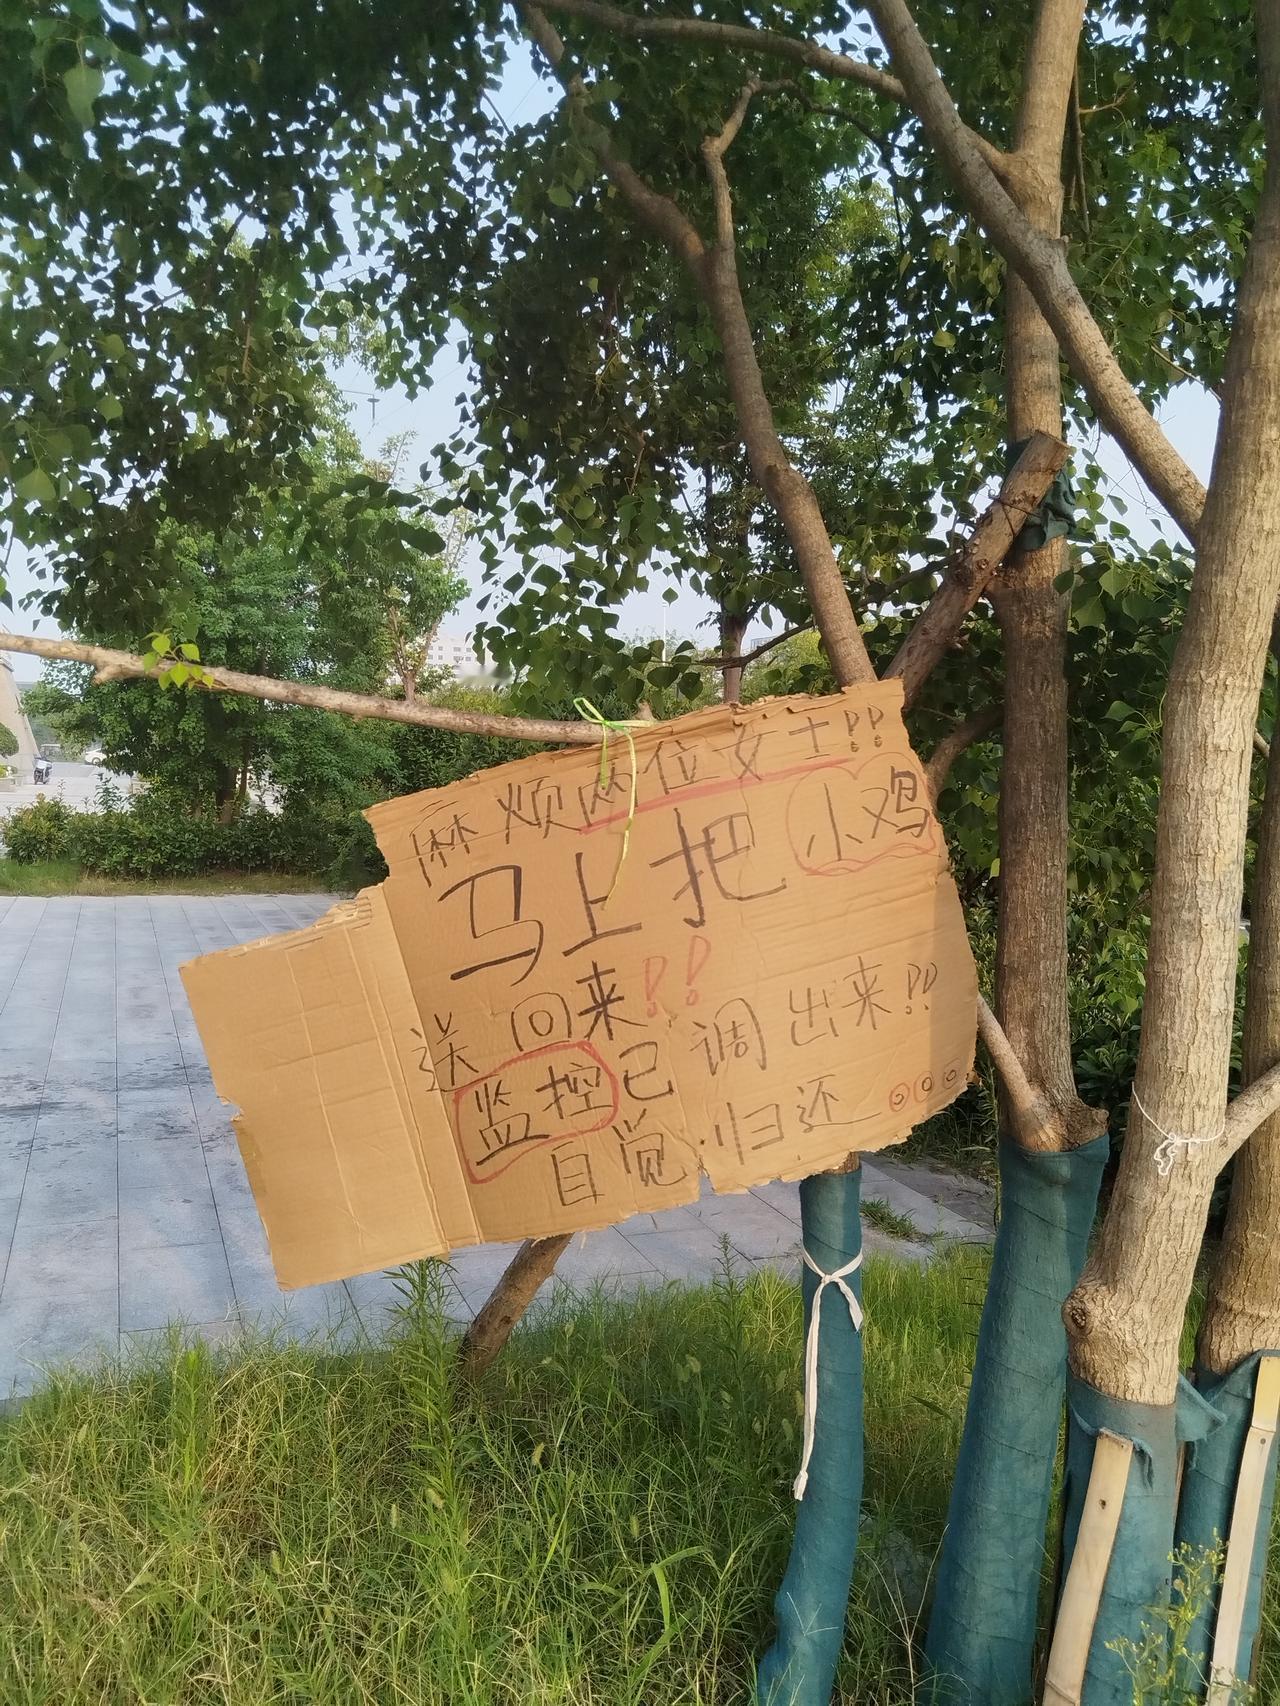 麻烦两位女士!!
马上把小鸡
送回来!!
监控已调出来!!
自觉归还